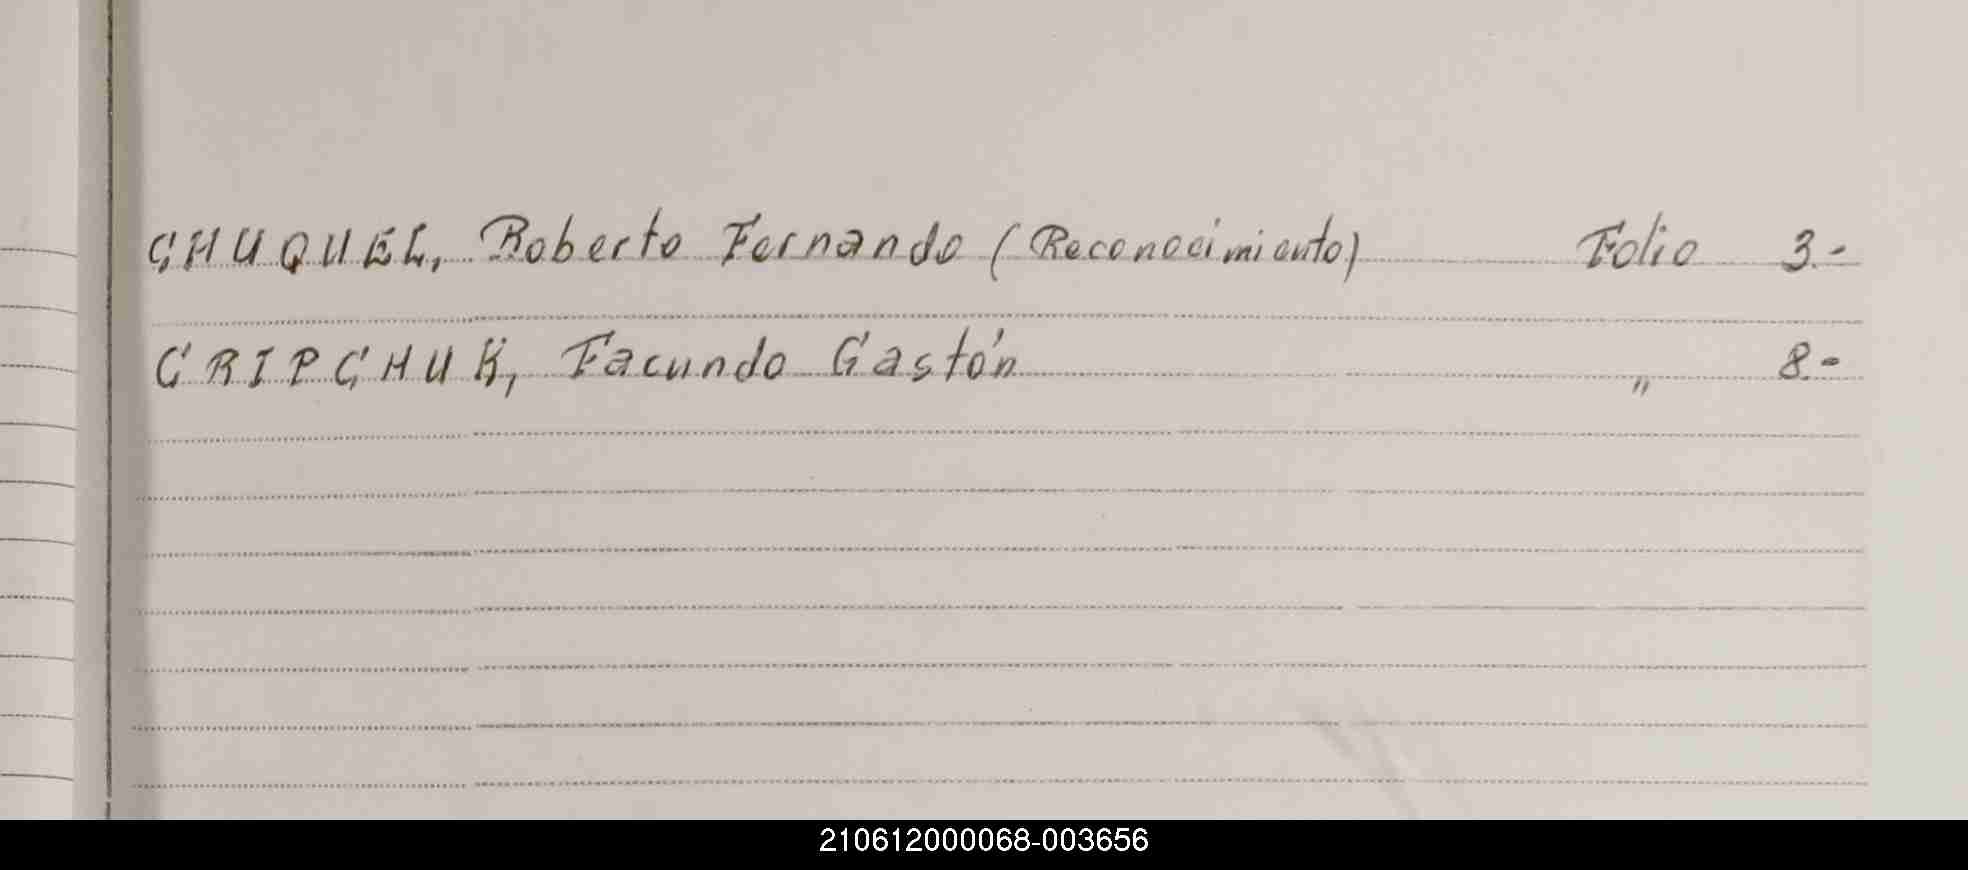 CHUQUEL, Roberto Fernando (Reconocimiento) Folio 3.-
CRIPCHUK, Facundo Gastón " 8.-
210612000068-003656